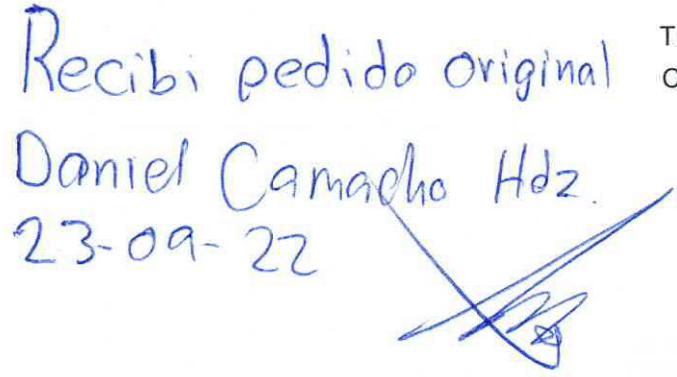 Recibi pedido original
Daniel Camacho Hdz.
23-09-22
T
C